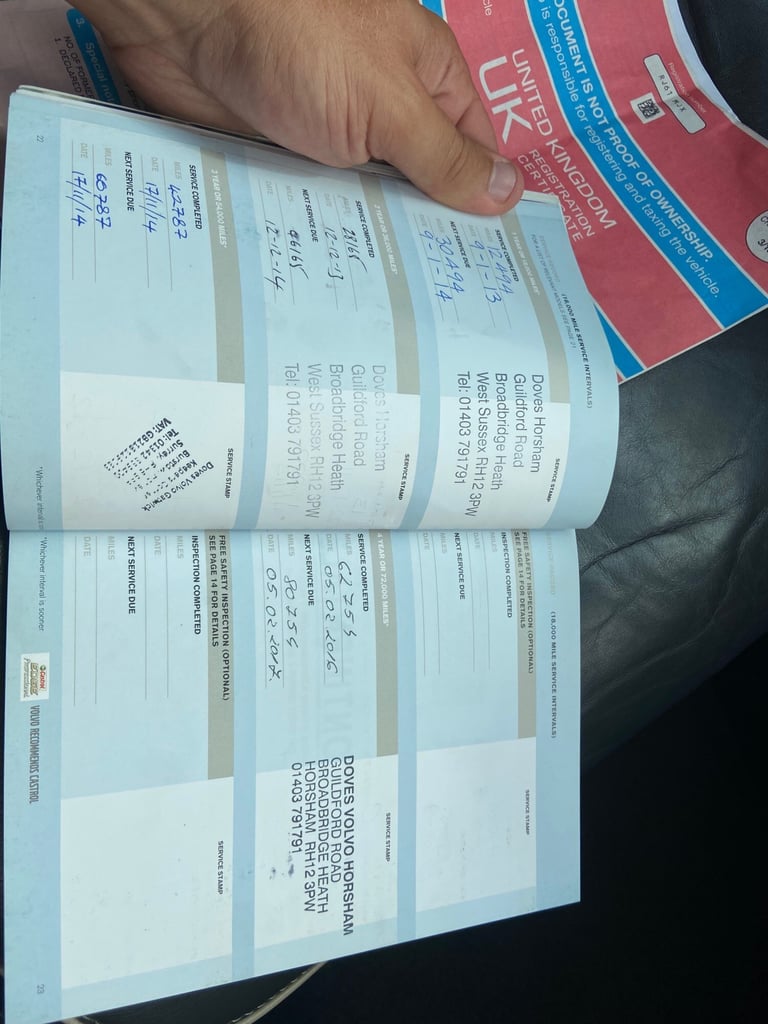 3. Special no
NO. OF FORME
1. DECLARED
UNITED KINGDOM
UK
REGISTRATION
CERT
CATE
OCUMENT IS NOT PROOF OF OWNERSHIP.
is responsible for registering and taxing the vehicle.
(18,000 MILE SERVICE INTERVALS)
FOR A LIST OF RELEVANT MODELS SEE PAGE 21
1 YEAR OR 18,000 MILES*
SERVICE COMPLETED
MILES 12494
DATE 9-1-13
NEXT SERVICE DUE
MILES 30494
DATE 9-1-14
SERVICE STAMP
Doves Horsham
Guildford Road
Broadbridge Heath
West Sussex RH12 3PW
Tel: 01403 791791
2 YEAR OR 36,000 MILES*
SERVICE COMPLETED
MILES 28165
DATE 12-12-13
NEXT SERVICE DUE
MILES 46165
DATE 12-12-14
SERVICE STAMP
Doves Horsham
Guildford Road
Broadbridge Heath
West Sussex RH12 3PW
Tel: 01403 791791
3 YEAR OR 54,000 MILES*
SERVICE COMPLETED
MILES 42787
DATE 17/11/14
NEXT SERVICE DUE
MILES 60787
DATE 17/11/14
SERVICE STAMP
Doves Volvo Gatwick
*Whichever interval is
22
(18,000 MILE SERVICE INTERVALS)
FREE SAFETY INSPECTION (OPTIONAL)
SEE PAGE 14 FOR DETAILS
INSPECTION COMPLETED
MILES
DATE
NEXT SERVICE DUE
MILES
DATE
SERVICE STAMP
4 YEAR OR 72,000 MILES*
SERVICE COMPLETED
MILES 62755
DATE 05.02.2016
NEXT SERVICE DUE
MILES 80755
DATE 05.02.2017.
SERVICE STAMP
DOVES VOLVO HORSHAM
GUILDFORD ROAD
BROADBRIDGE HEATH
HORSHAM RH12 3PW
01403 791791
FREE SAFETY INSPECTION (OPTIONAL)
SEE PAGE 14 FOR DETAILS
INSPECTION COMPLETED
MILES
DATE
NEXT SERVICE DUE
MILES
DATE
SERVICE STAMP
*Whichever interval is sooner
Castrol
EDGE
Professional
VOLVO RECOMMENDS CASTROL
23